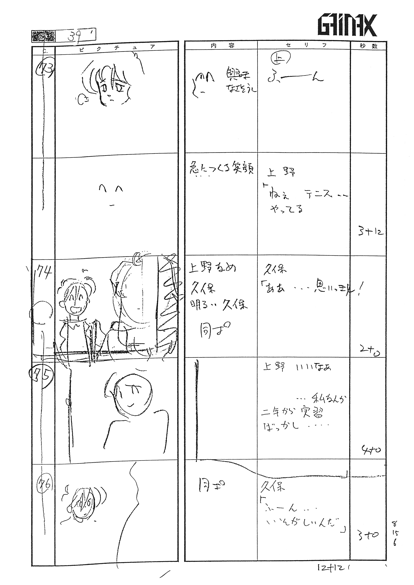 GAINAX
39
C
ピクチュア
内容
セリフ
秒数
73
上
ふーーん
急につくる笑顔
上野
「ねぇ テニス・・・
やってる
3+12
74
上野なめ
久保
明るい 久保
同ポ
久保
「ああ・・・思いっきり!
2+0
75
上野 いいなぁ
・・・私なんか
二年から実習
ばっかし・・・・
4+0
76
同ポ
久保
「ふーん・・・
いそがしいんだ」
3+0
12+12